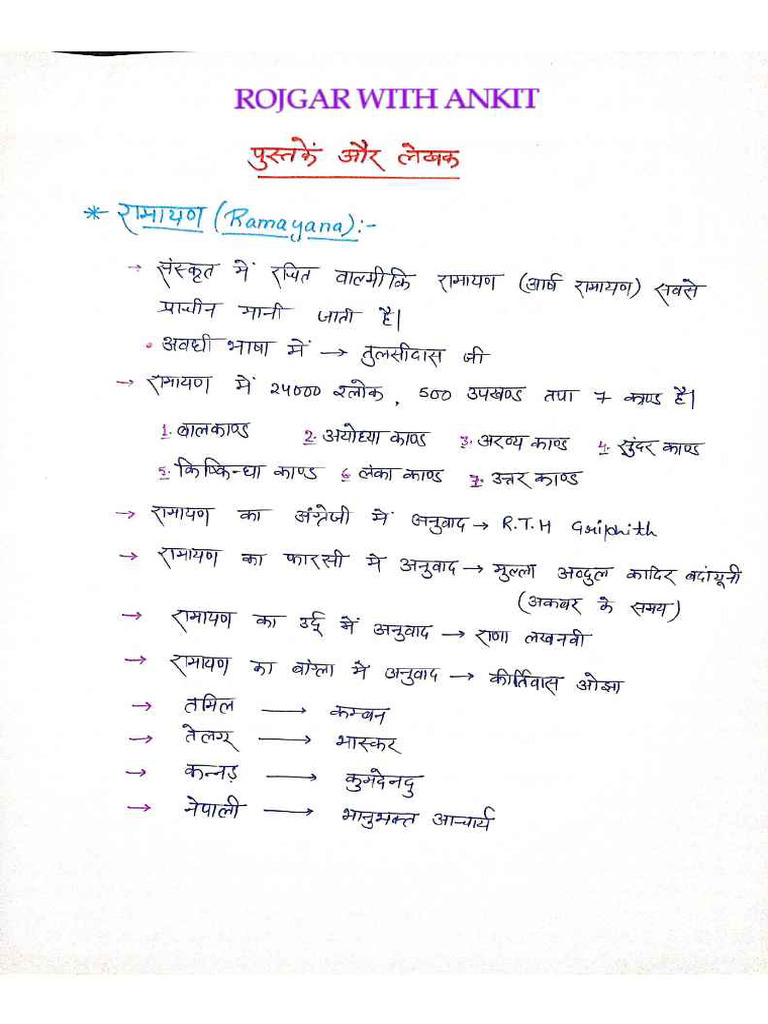 ROJGAR WITH ANKIT
पुस्तकें और लेखक
* रामायण (Ramayana):-
→ संस्कृत में रचित वाल्मीकि रामायण (आर्ष रामायण) सबसे
प्राचीन मानी जाती है।
• अवधी भाषा में → तुलसीदास जी
→ रामायण में 24000 श्लोक, 500 उपखण्ड तथा 7 काण्ड है।
1. बालकाण्ड 2. अयोध्या काण्ड 3. अरण्य काण्ड 4. सुंदर काण्ड
5. किष्किन्धा काण्ड 6. लंका काण्ड 7. उत्तर काण्ड
→ रामायण का अंग्रेजी में अनुवाद → R.T.H Griphith
→ रामायण का फारसी में अनुवाद → मुल्ला अब्दुल कादिर बदांयूनी
(अकबर के समय)
→ रामायण का उर्दू में अनुवाद → राणा लखनवी
→ रामायण का बांग्ला में अनुवाद → कीर्तिवास ओझा
→ तमिल → कम्बन
→ तेलगू → भास्कर
→ कन्नड़ → कुमदेनदु
→ नेपाली → भानुभक्त आचार्य